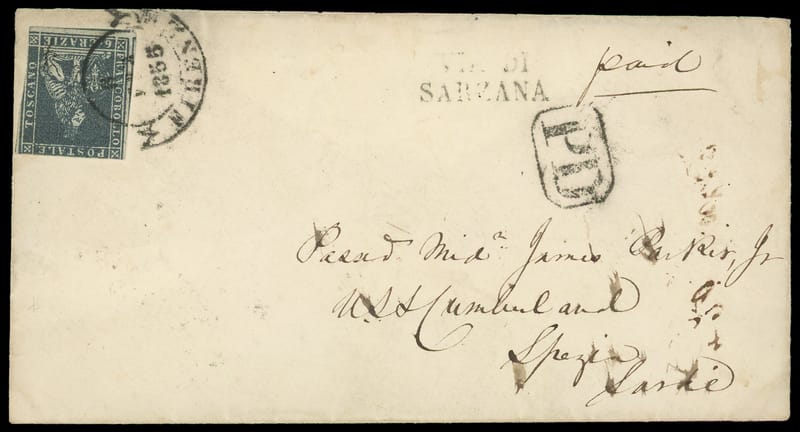 FRANCOBOLLO
POSTALE
TOSCANO
6 CRAZIE
FIRENZE
1855
VIA DI
SARZANA
paid
PD
Passd Midn James Parker, Jr
U.S.S Cumberland
Spezia
Sardie